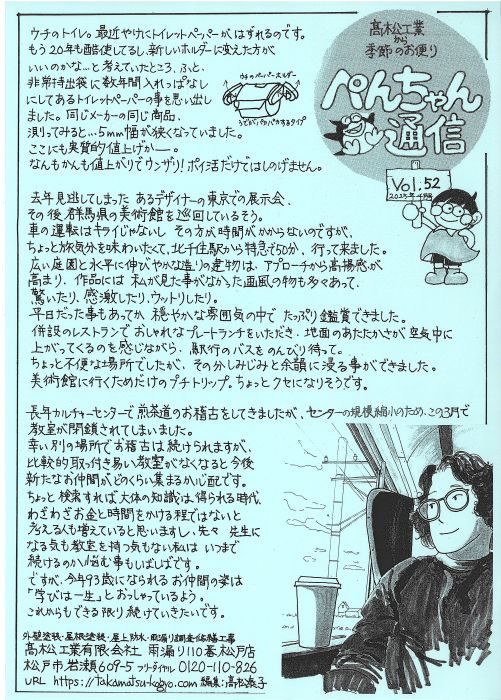 髙松工業
から
季節のお便り
ぺんちゃん
通信
Vol.52
ウチのトイレ。最近やけにトイレットペーパーがはずれるのです。
もう20年も酷使してるし、新しいホルダーに変えた方が
いいのかな…と考えていたところ、ふと、
非常持出袋に数年間入れっぱなし
にしてあるトイレットペーパーの事を思い出し
ました。同じメーカーの同じ商品、
測ってみると…5mm幅が狭くなっていました。
ここにも実質的値上げかー。
なんもかんも値上がりでウンザリ!ポイ活だけではしのげません。
ウチのペーパーホルダー
去年見逃してしまった あるデザイナーの東京での展示会、
その後 群馬県の美術館を巡回しているそう。
車の運転はキライじゃないし その方が時間がかからないのですが、
ちょっと旅気分を味わいたくて、北千住駅から特急で50分、行って来ました。
広い庭園と水平に伸びやかな造りの建物は、アプローチから高揚感が
高まり、作品には 私が見た事がなかった画風の物も多々あって、
驚いたり、感激したり、ウットリしたり。
平日だった事もあってか、穏やかな雰囲気の中で たっぷり鑑賞できました。
併設のレストランで おしゃれなプレートランチをいただき、地面のあたたかさが 空気中に
上がってくるのを感じながら、駅行のバスを のんびり待って。
ちょっと不便な場所でしたが、その分しみじみと余韻に浸る事ができました。
美術館に行くためだけのプチトリップ。ちょっとクセになりそうです。
長年カルチャーセンターで 煎茶道のお稽古をしてきましたが、センターの規模縮小のため、この3月で
教室が閉鎖されてしまいました。
幸い別の場所でお稽古は続けられますが、
比較的取っ付き易い教室がなくなると今後
新たなお仲間がどのくらい集まるか心配です。
ちょっと検索すれば大体の知識は得られる時代、
わざわざお金と時間をかける程ではないと
考える人も増えていると思いますし、先々 先生に
なる気も教室を持つ気もない私は いつまで
続けるのか悩む事もしばしばです。
ですが、今年93歳になられるお仲間の姿は
「学びは一生」とおっしゃっているよう。
これからもできる限り続けていきたいです。
外壁塗装・屋根塗装・屋上防水・雨漏り調査・修繕工事
髙松工業有限会社 雨漏り110番松戸店
松戸市岩瀬609-5 フリーダイヤル 0120-110-826
URL https://takamatsu-kogyo.com 編集:髙松